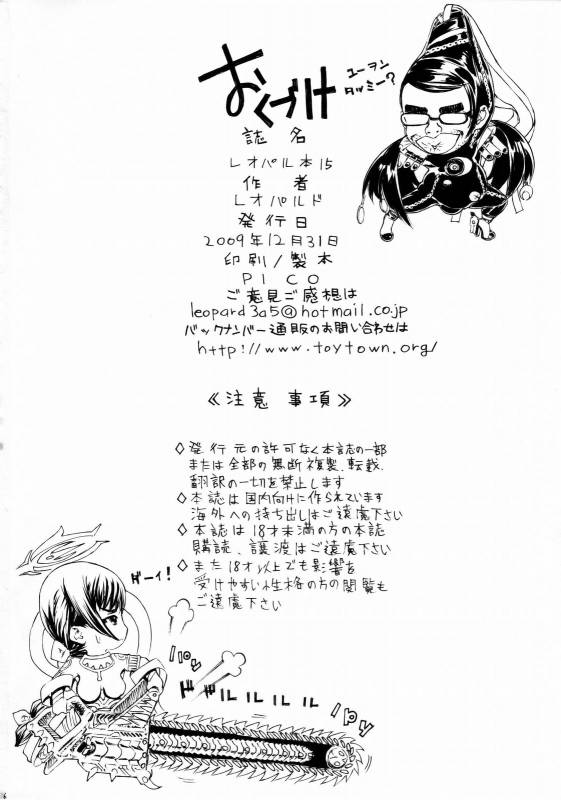 おくづけ
ユーヲン
タッミー?
誌名
レオパル本15
作者
レオパルド
発行日
2009年12月31日
印刷/製本
PICO
ご意見ご感想は
leopard3a5@hotmail.co.jp
バックナンバー通販のお問い合わせは
http://www.toytown.org/
《注意事項》
◇発行元の許可なく本誌の一部
または全部の無断複製、転載、
翻訳の一切を禁止します
◇本誌は国内向けに作られています
海外への持ち出しはご遠慮下さい
◇本誌は18才未満の方の本誌
購読、譲渡はご遠慮下さい
◇また18才以上でも影響を
受けやすい性格の方の閲覧も
ご遠慮下さい
ダーイ!
ドドルルルルル